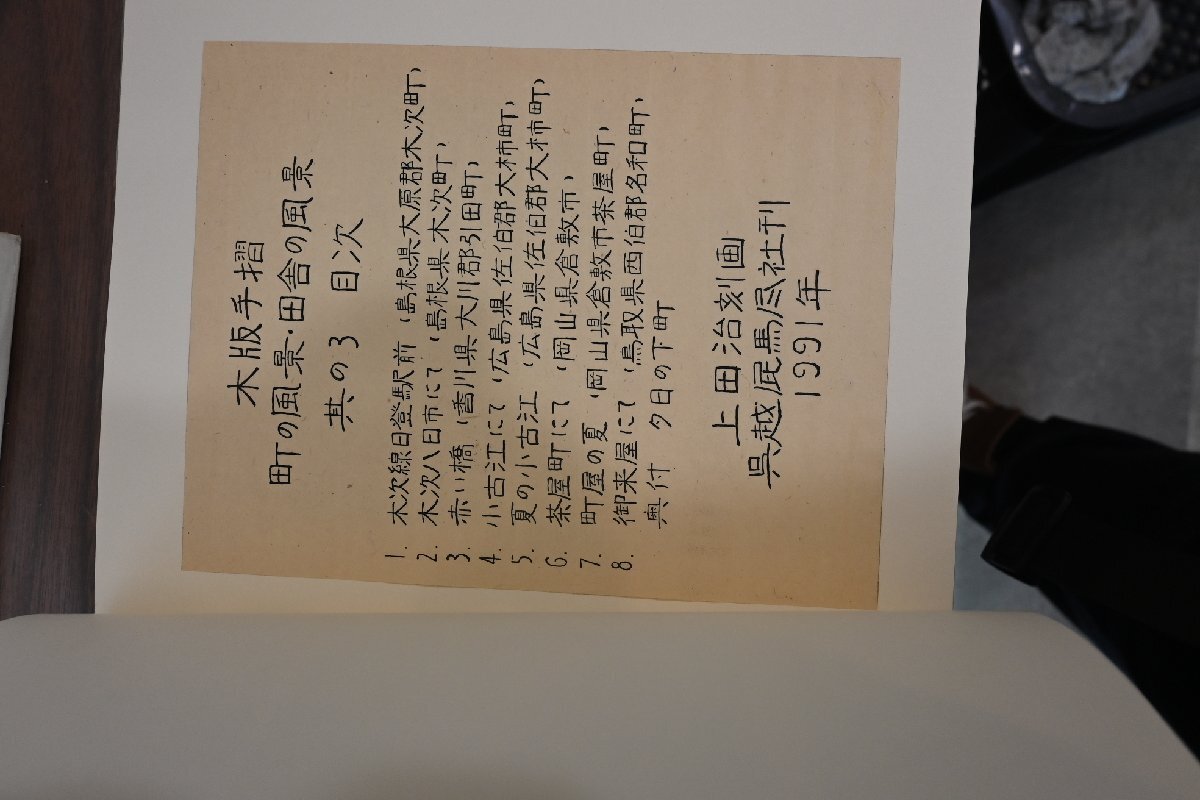 木版手摺
町の風景・田舎の風景
其の3 目次
1. 木次線日登駅前 (島根県大原郡木次町)
2. 木次八日市にて (島根県木次町)
3. 赤い橋 (香川県大川郡引田町)
4. 小古江にて (広島県佐伯郡大柿町)
5. 夏の小古江 (広島県佐伯郡大柿町)
6. 茶屋町にて (岡山県倉敷市)
7. 町屋の夏 (岡山県倉敷市茶屋町)
8. 御来屋にて (鳥取県西伯郡名和町)
奥付 夕日の下町
上田治刻画
呉越屁馬尽社刊
1991年